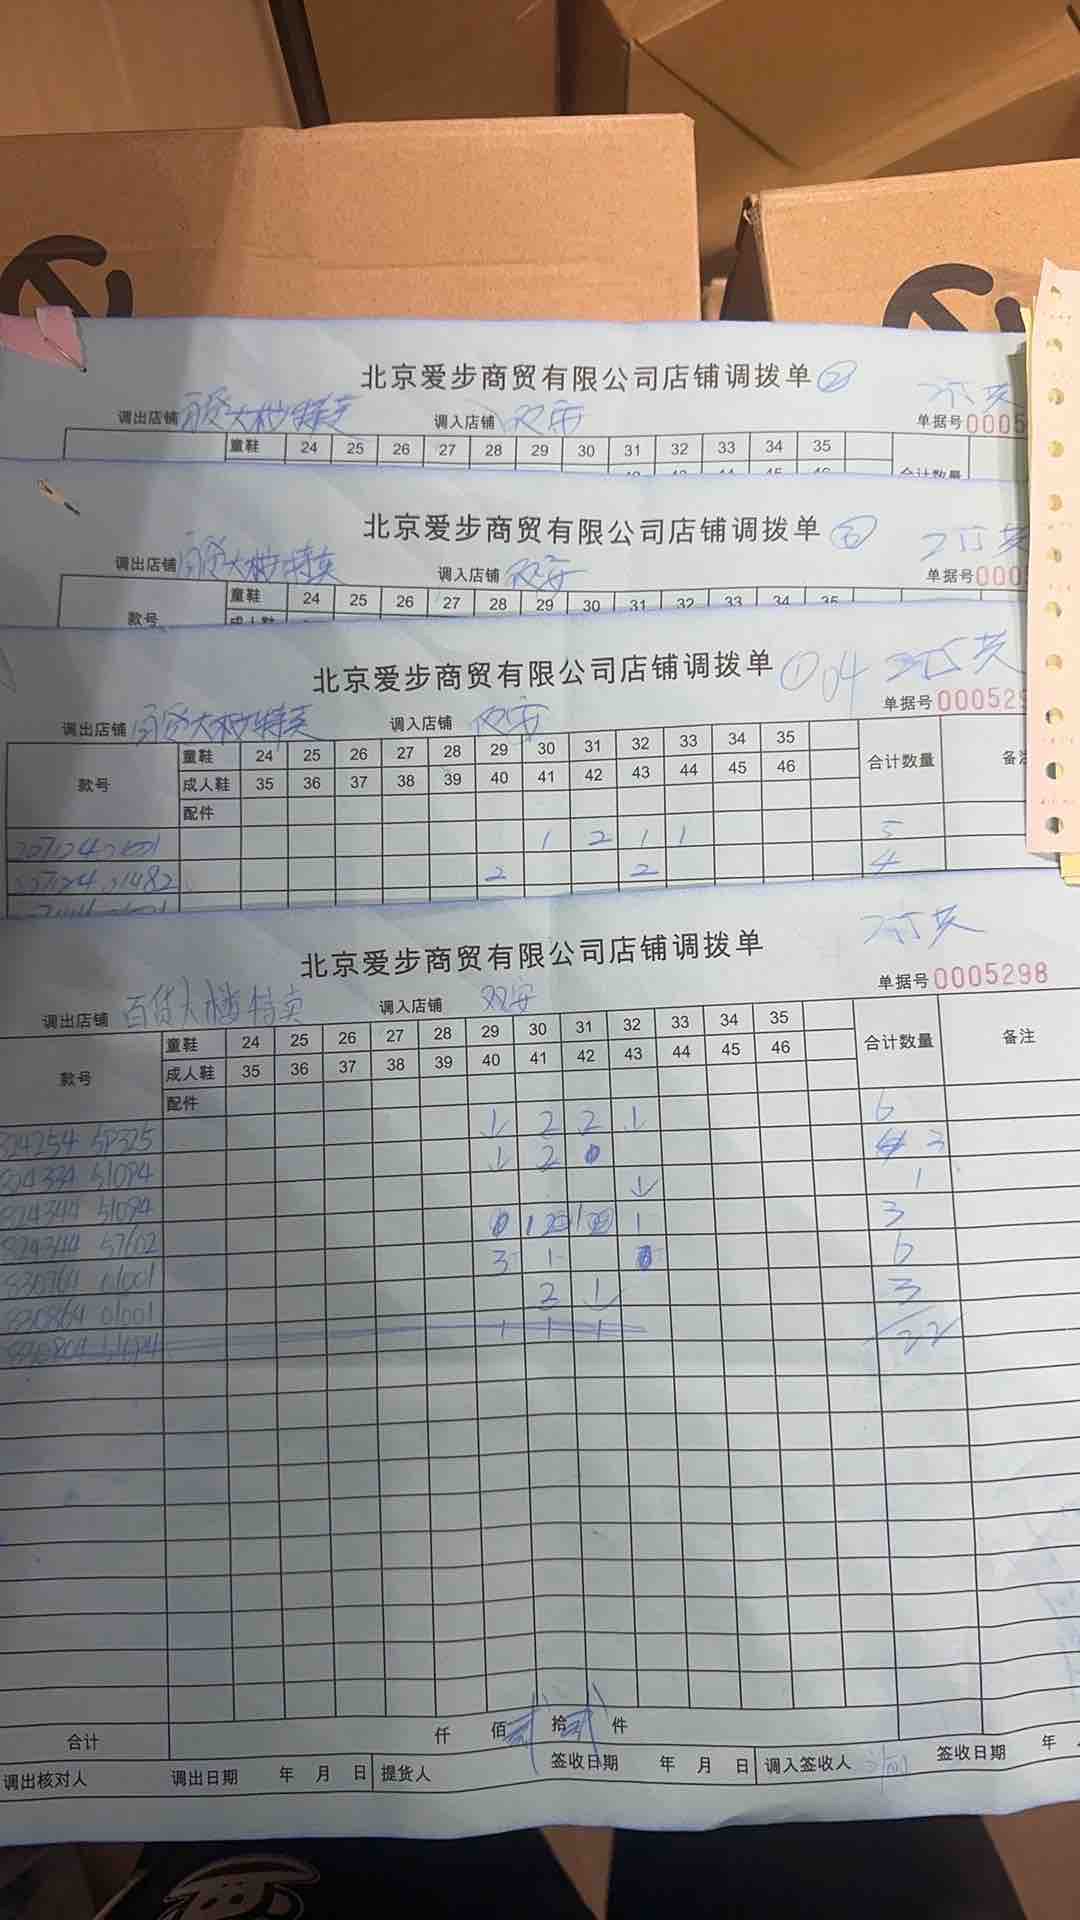 北京爱步商贸有限公司店铺调拨单 ②
调出店铺 百货大楼特卖 调入店铺 双安 单据号 0005
童鞋 24 25 26 27 28 29 30 31 32 33 34 35
合计数量
北京爱步商贸有限公司店铺调拨单
调出店铺 百货大楼特卖 调入店铺 双安 单据号 000
童鞋 24 25 26 27 28 29 30 31 32 33 34 35
款号 成人鞋
北京爱步商贸有限公司店铺调拨单 ① 04
调出店铺 百货大楼特卖 调入店铺 双安 单据号 000529
童鞋 24 25 26 27 28 29 30 31 32 33 34 35
款号 成人鞋 35 36 37 38 39 40 41 42 43 44 45 46 合计数量 备注
配件
1 2 1 1 5
2 2 4
北京爱步商贸有限公司店铺调拨单
调出店铺 百货大楼特卖 调入店铺 双安 单据号 0005298
童鞋 24 25 26 27 28 29 30 31 32 33 34 35
款号 成人鞋 35 36 37 38 39 40 41 42 43 44 45 46 合计数量 备注
配件
824254 5P325 1 2 2 1 6
824334 51094 1 2 3
824344 51094 1 1
824344 57602 1 1 1 3
830764 01001 3 1 6
830864 01001 2 1 3
1 1 1 22
合计 仟 佰 贰 拾 贰 件
调出核对人 调出日期 年 月 日 提货人 签收日期 年 月 日 调入签收人 签收日期 年